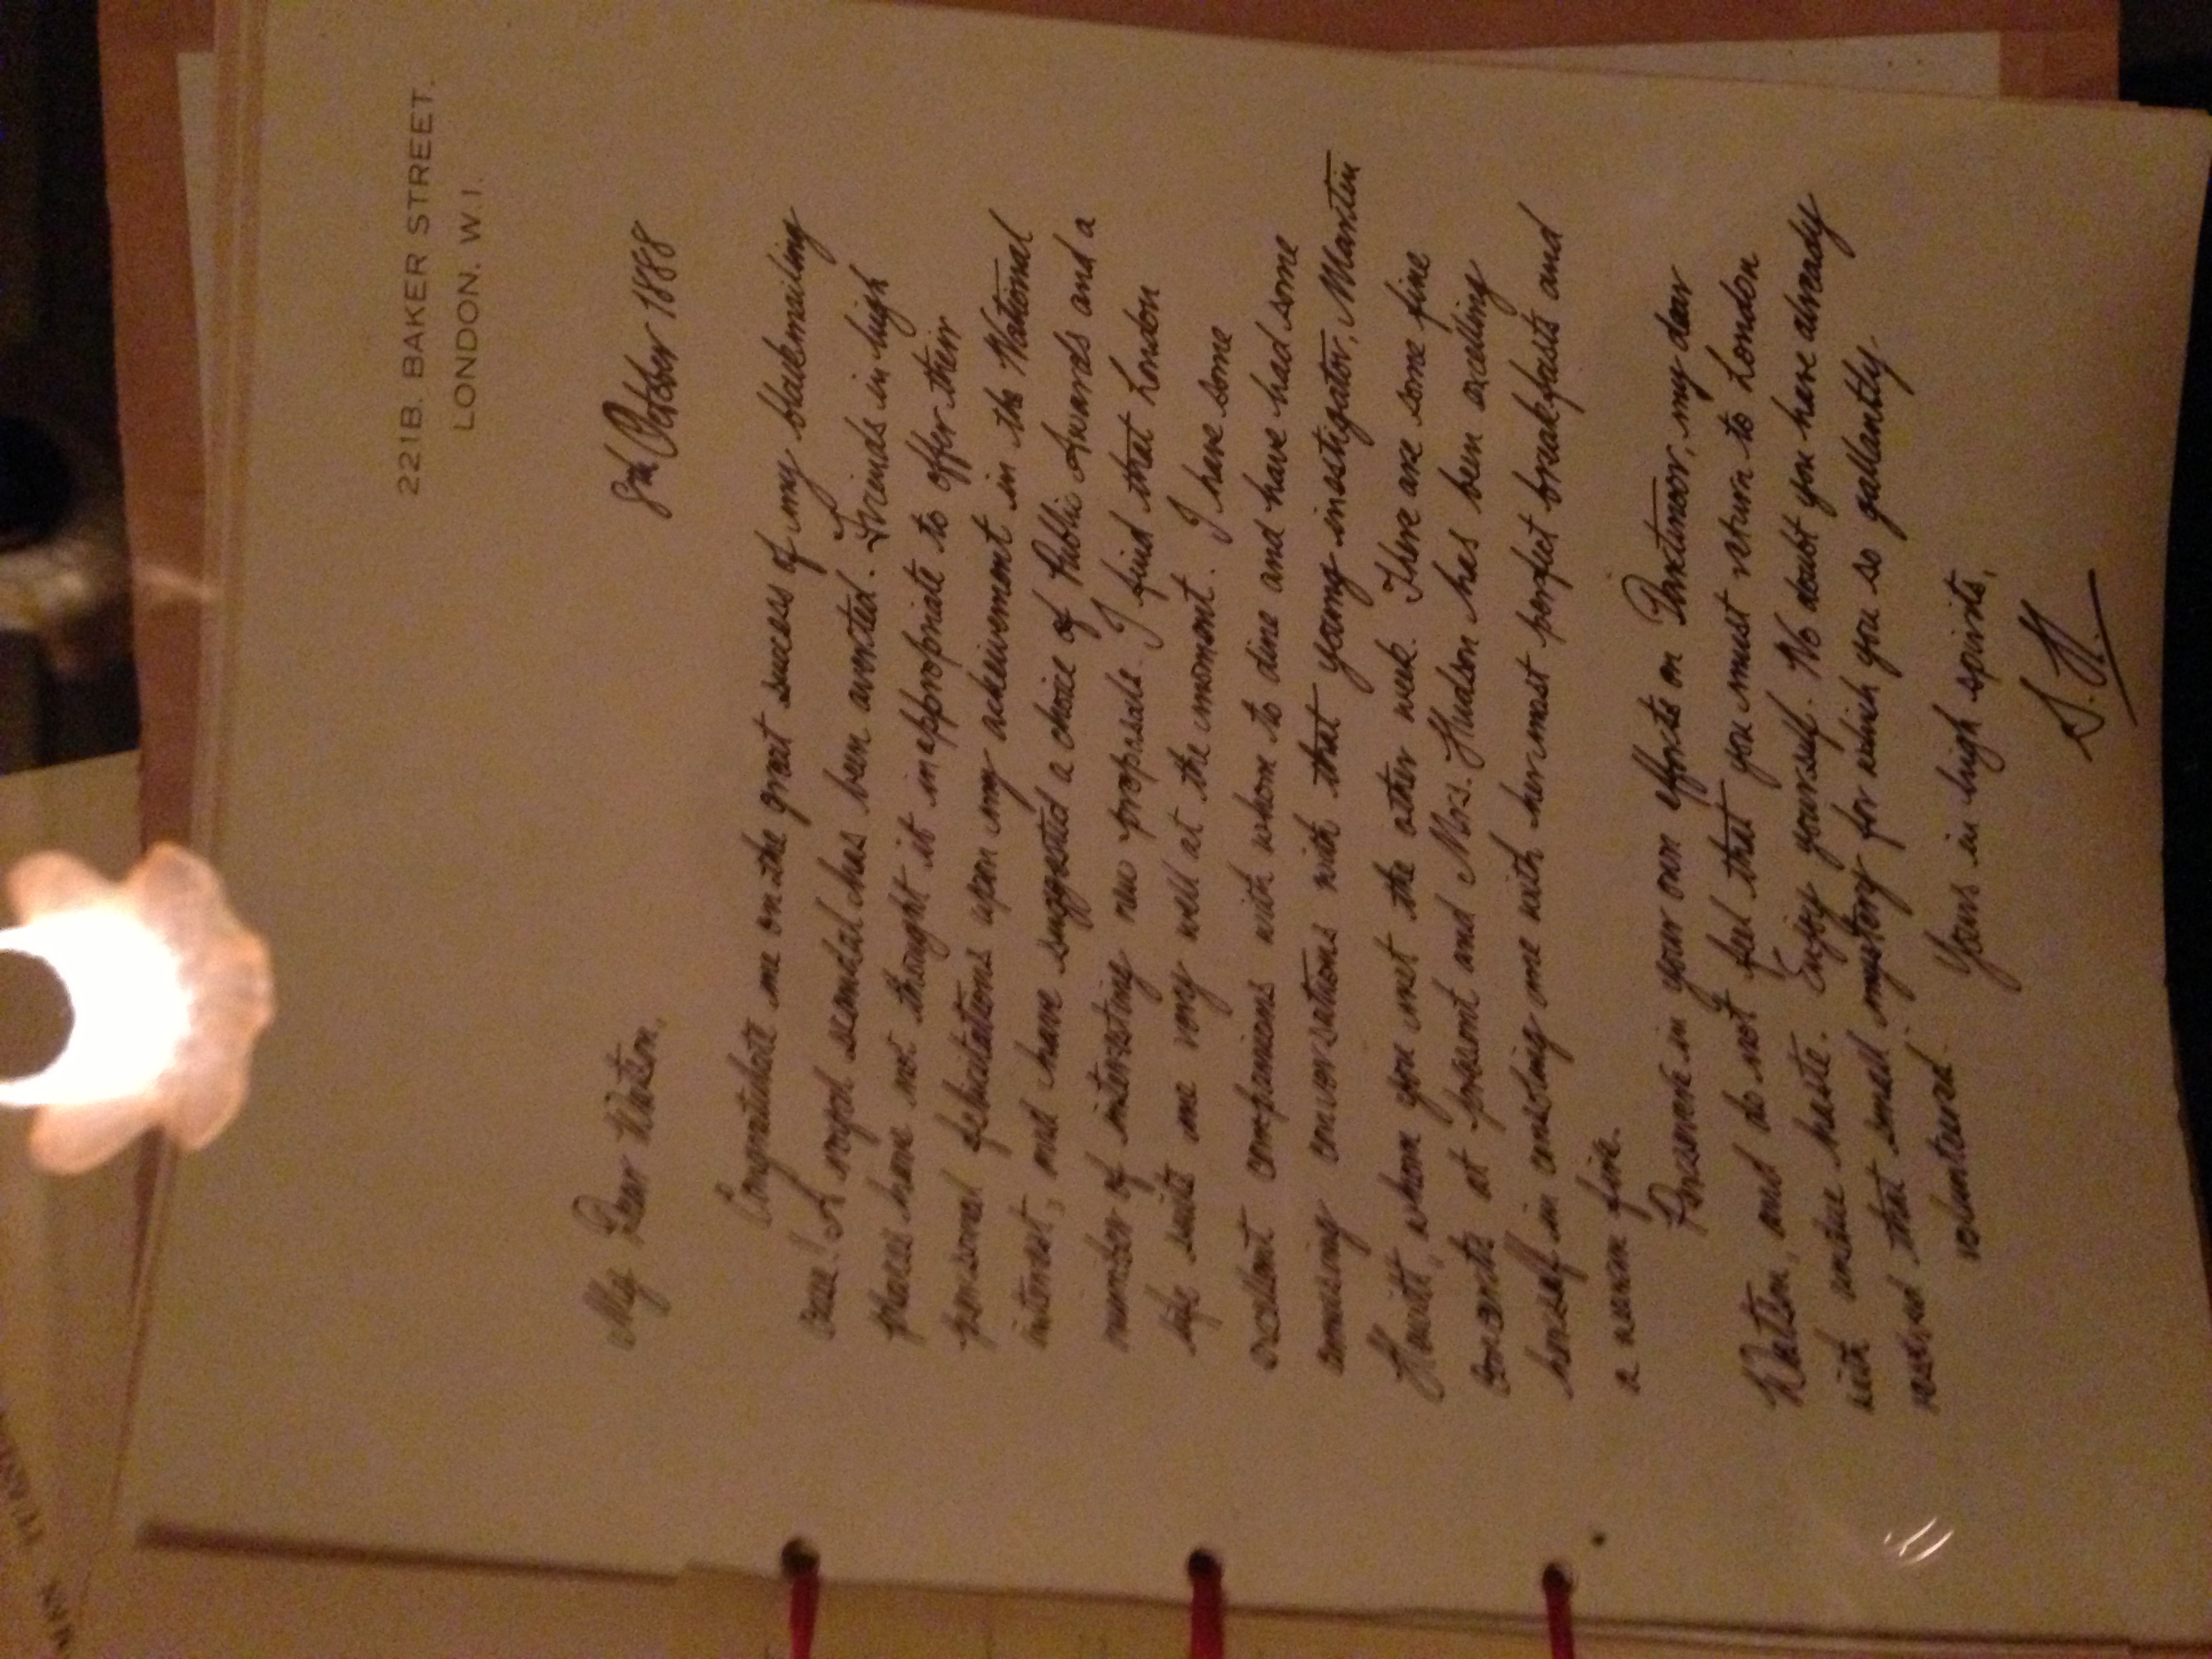 221B. BAKER STREET.
LONDON. W.1.
8th October 1888
My Dear Watson,
Congratulate me on the great success of my blackmailing
case! A royal scandal has been averted. Friends in high
places have not thought it inappropriate to offer their
personal felicitations upon my acheivement in the National
interest, and have suggested a choice of Public Awards and a
number of interesting new proposals. I find that London
life suits me very well at the moment. I have some
excellent companions with whom to dine and have had some
amusing conversations with that young investigator, Martin
Hewitt, whom you met the other week. There are some fine
concerts at present and Mrs. Hudson has been excelling
herself in enlisting me with her most perfect breakfasts and
a warm fire.
Persevere in your own efforts on Dartmoor, my dear
Watson, and do not feel that you must return to London
with undue haste. Enjoy yourself. No doubt you have already
resolved that small mystery for which you so gallantly
volunteered.
Yours in high spirits,
S.H.